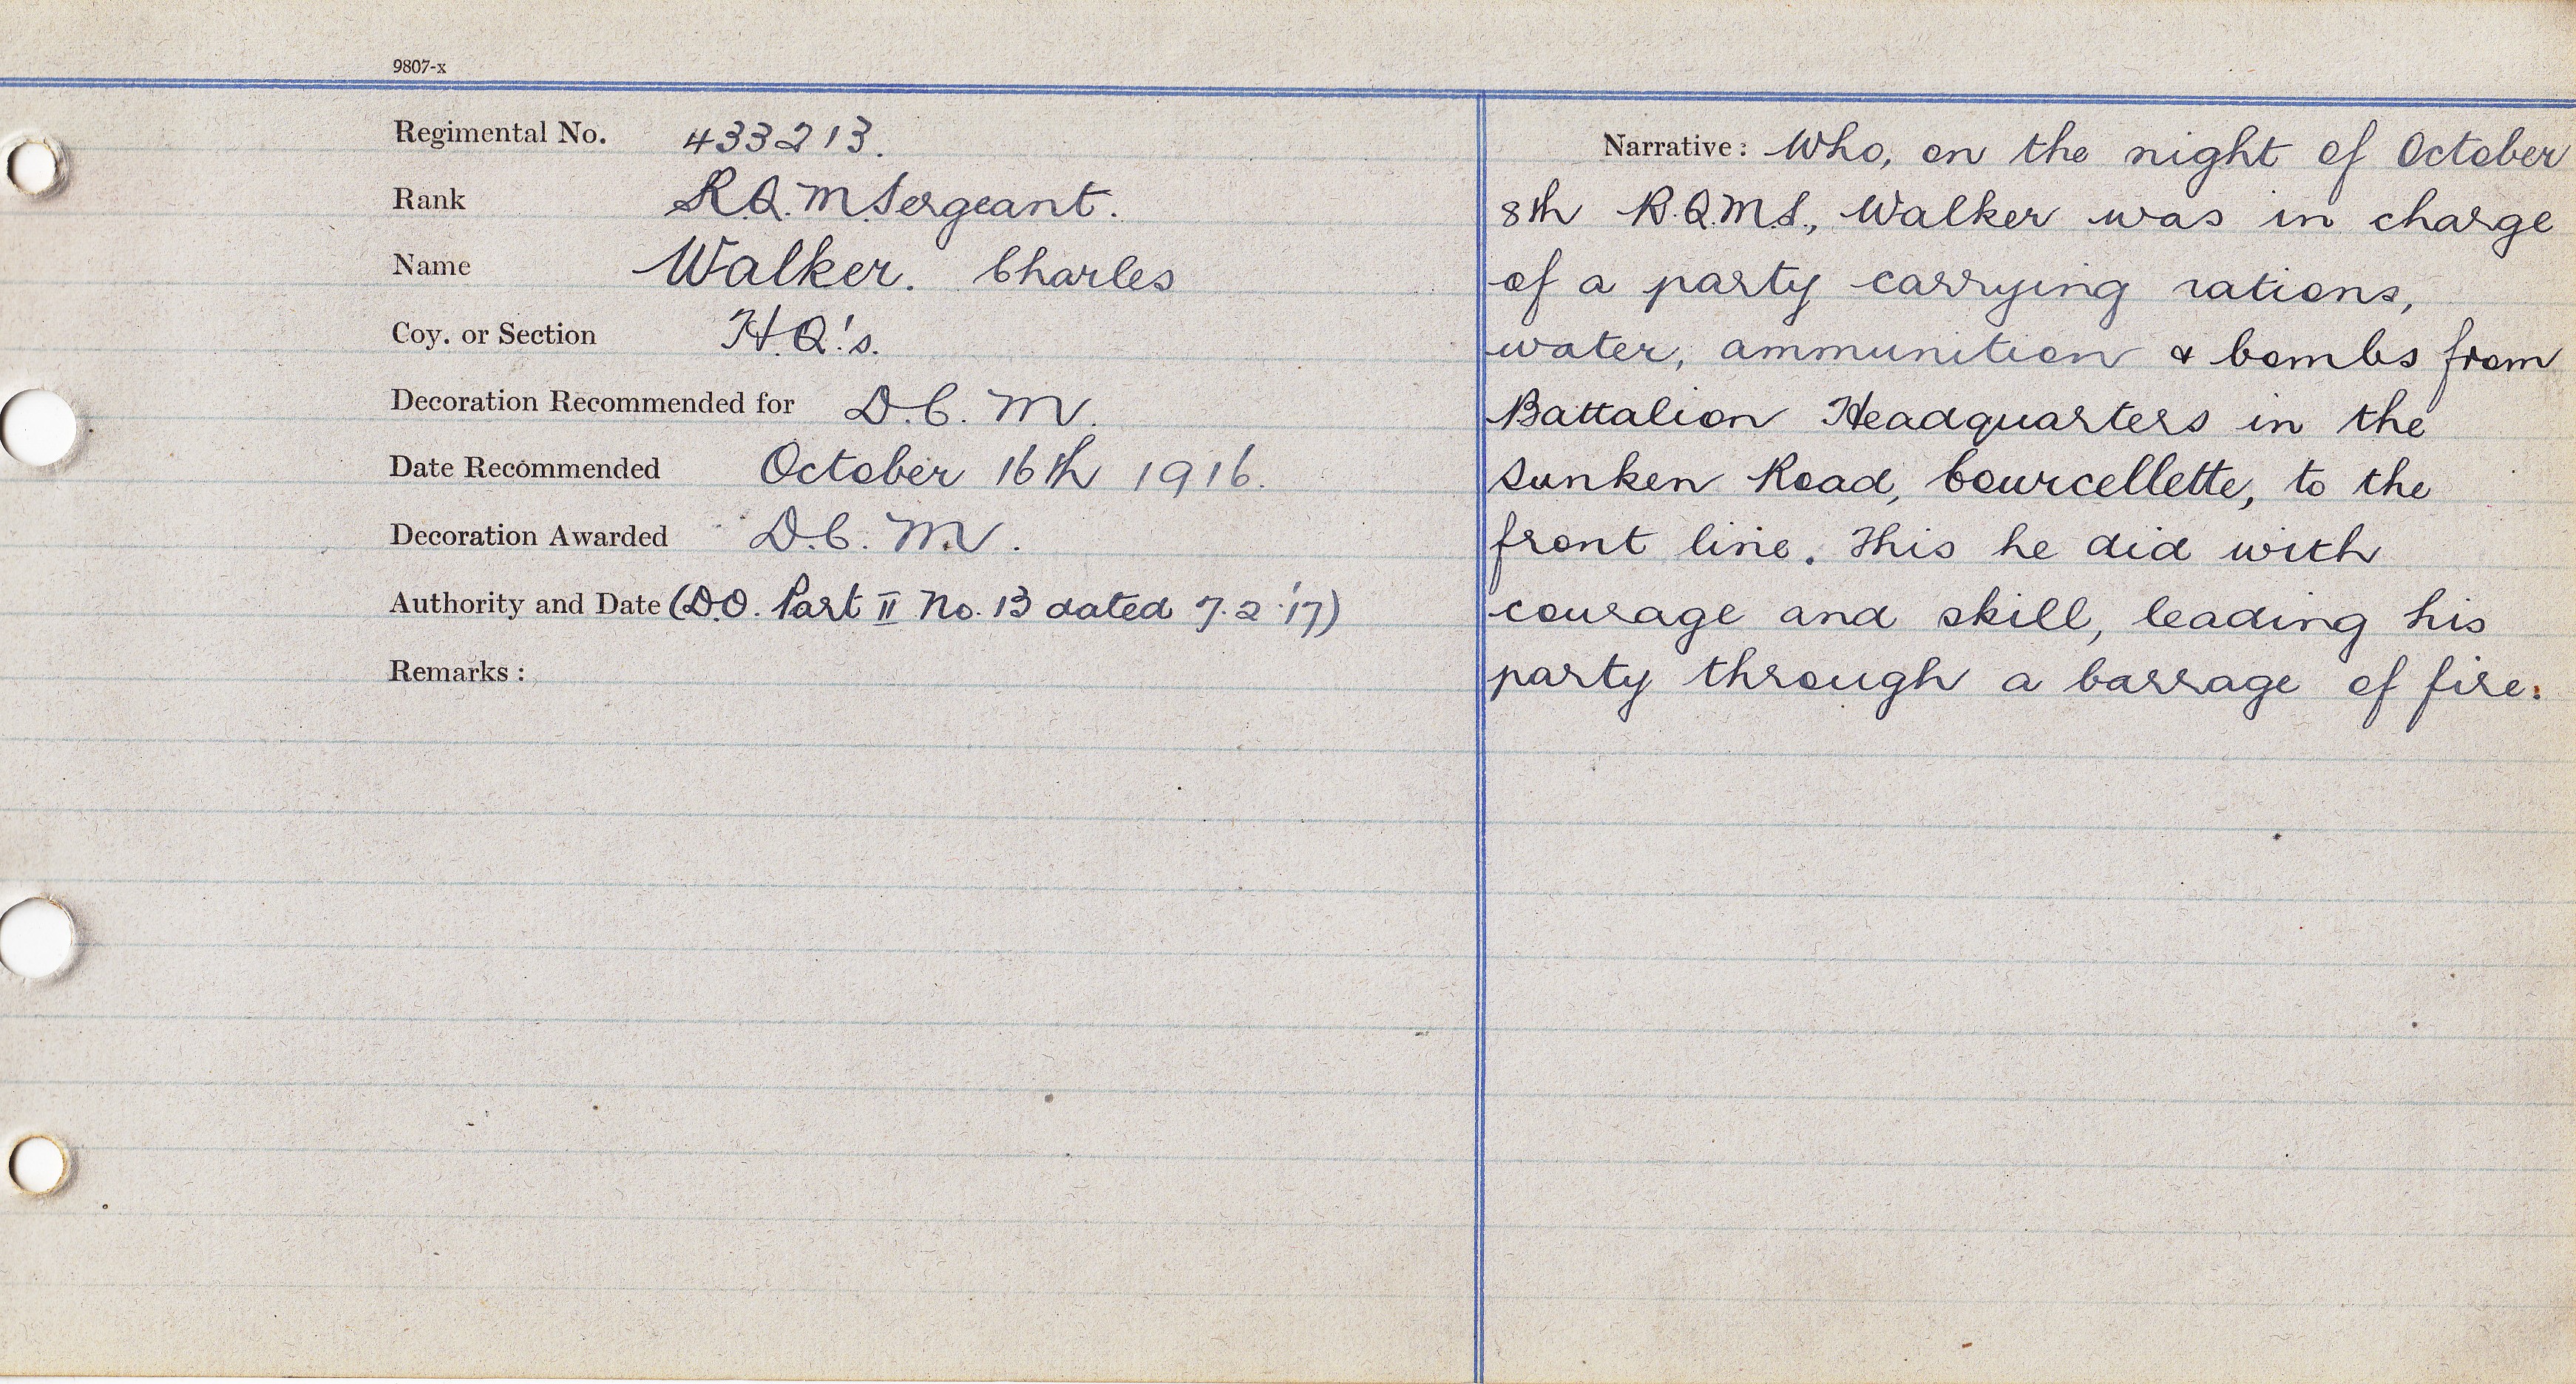 9807-x
Regimental No. 433213.
Rank R.Q.M. Sergeant.
Name Walker. Charles
Coy. or Section H.Q!s.
Decoration Recommended for D.C.M.
Date Recommended October 16th 1916.
Decoration Awarded D.C.M.
Authority and Date (D.O. Part II No. 13 dated 7.2.'17)
Remarks:
Narrative: Who, on the night of October
8th R.Q.M.S., Walker was in charge
of a party carrying rations,
water, ammunition & bombs from
Battalion Headquarters in the
Sunken Road, Courcellette, to the
front line. This he did with
courage and skill, leading his
party through a barrage of fire.